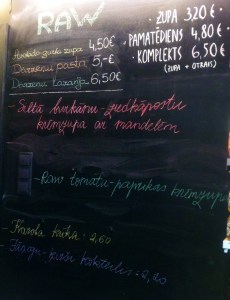 RAW
Avokado-gurķu zupa 4,50€
Dārzeņu pasta 5,-€
Dārzeņu lazanja 6,50€
ZUPA 3,20 €
• PAMATĒDIENS 4,80 €
• KOMPLEKTS 6,50 €
(ZUPA + OTRAIS)
- Siltā burkānu-ziedkāpostu
krēmzupa ar mandelēm
- Raw tomātu-paprikas krēmzupa
- Kakola kūka - 2,60
- kokteilis - 2,20